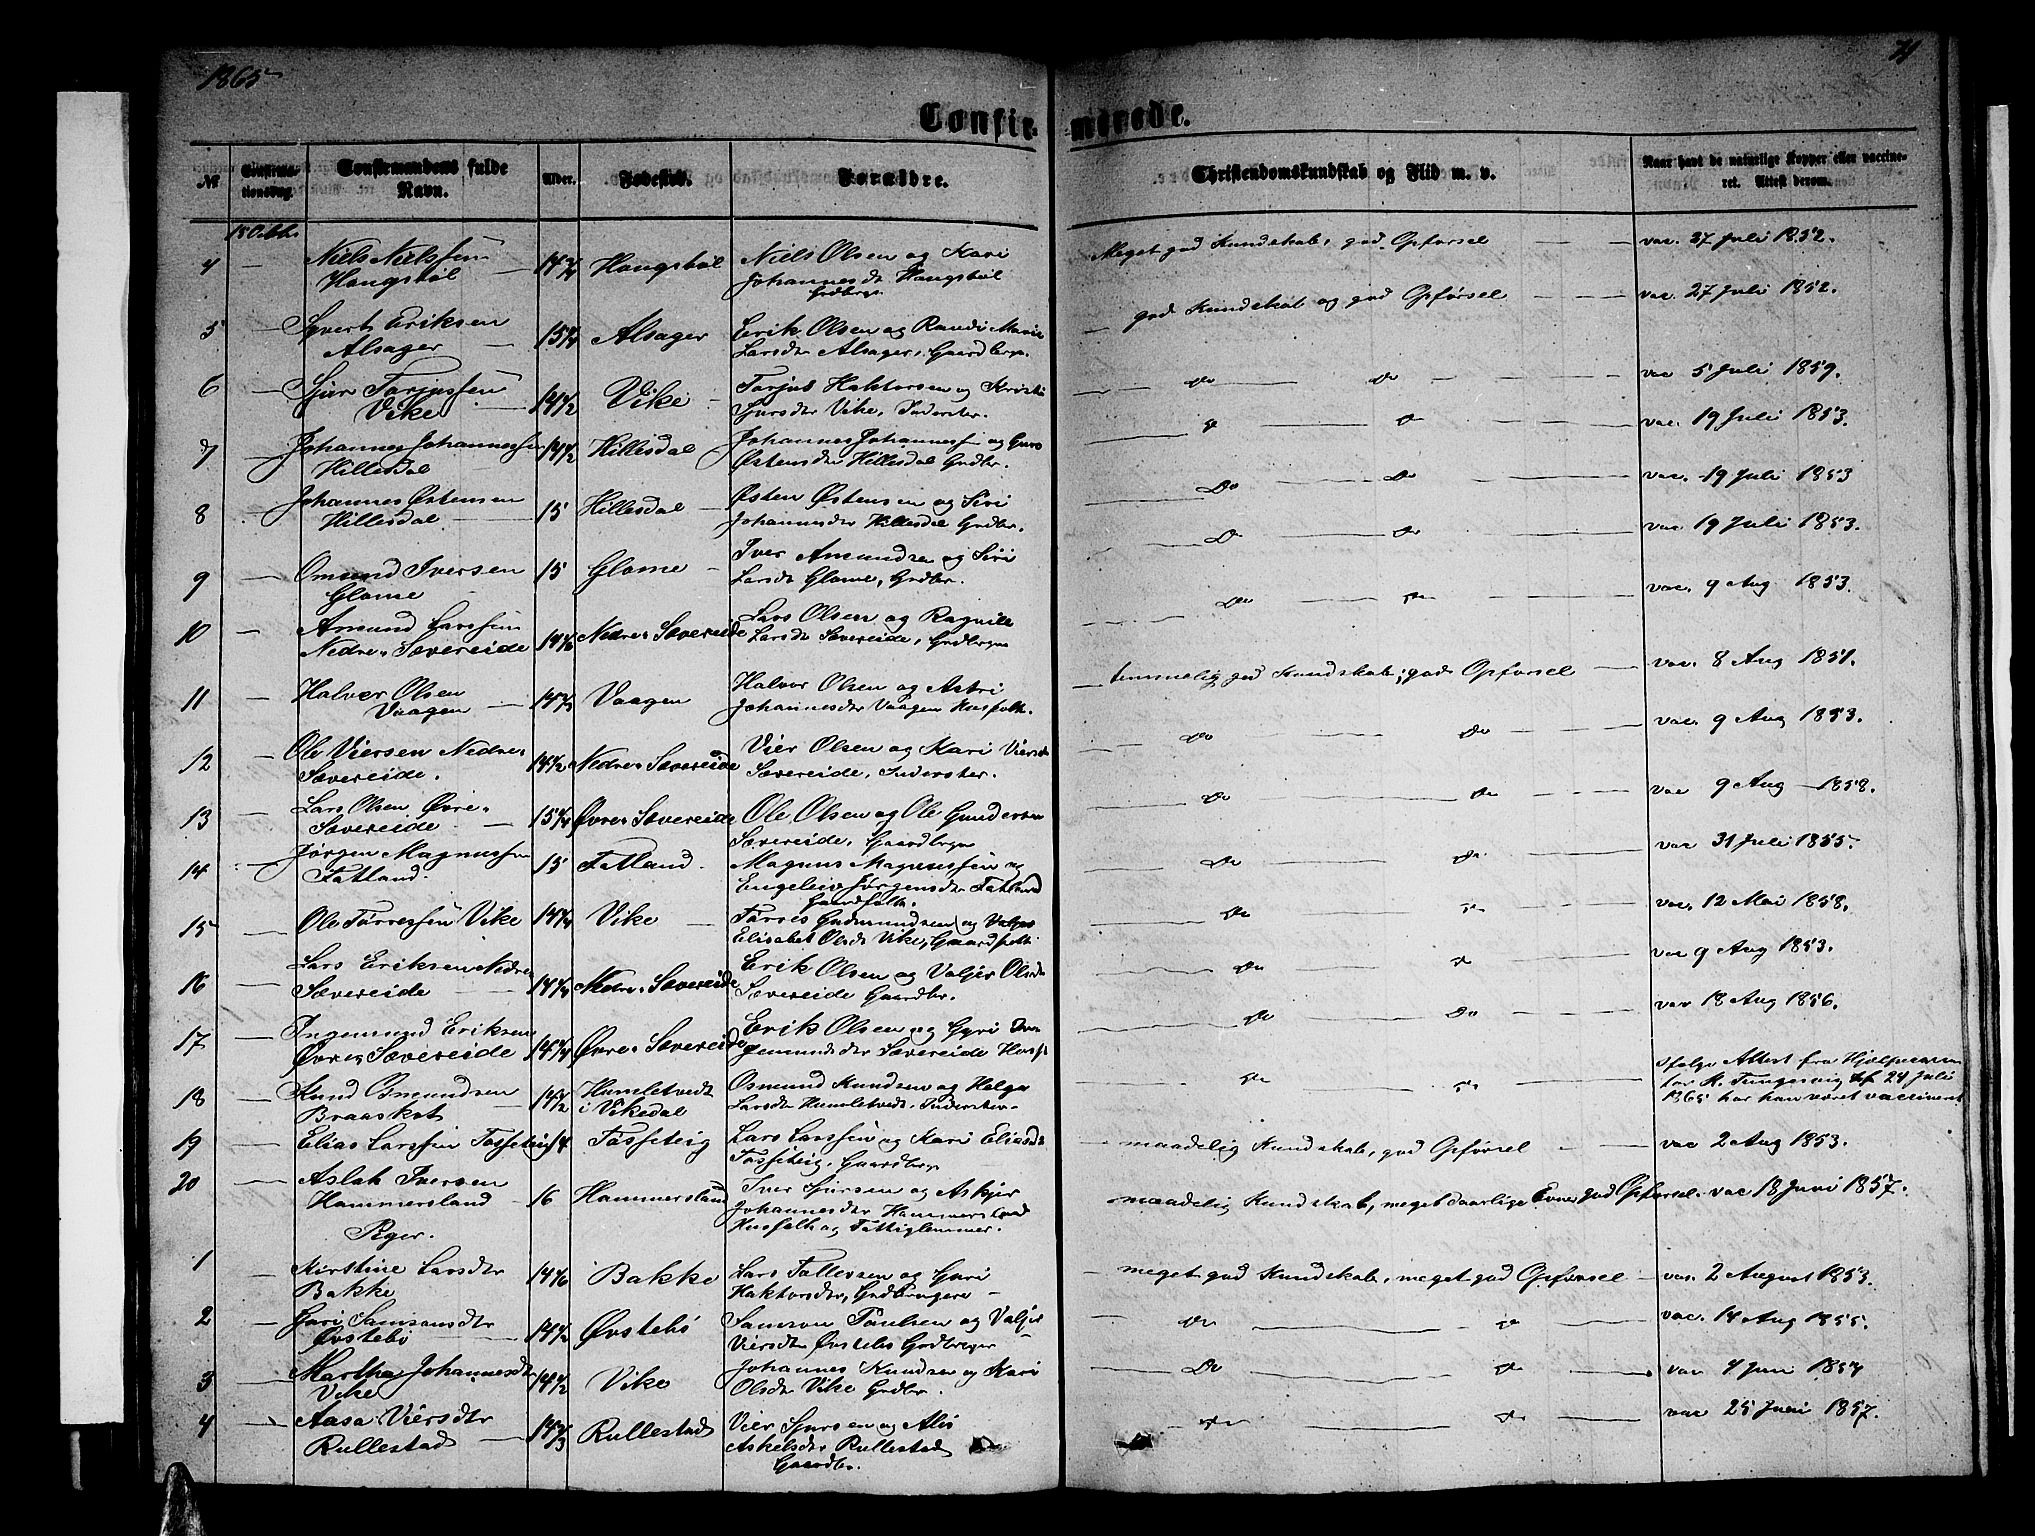 1865
71
Confirmerede.
№
Confirmationsdag.
Confirmandens fulde Navn.
Alder.
Fødested.
Forældre.
Christendomskundskab og Flid m. v.
Naar havt de naturlige Kopper eller vaccineret. Attest derom.
15 Octbr.
4 — Niels Nielssen Haugstøl — 14 3/4 Haugstøl Niels Olsen og Kari Johannesdr Haugstøl Grdbrgr Meget god Kundskab, god Opførsel — — vac. 27 Juli 1852.
5 — Sjvert Eriksen Alsager — 15 1/4 Alsager Erik Olsen og Randi Marie Larsdtr Alsager, Gaardbrgr. — god Kundskab og god Opførsel — — vac. 27 Juli 1852.
6 — Sjur Torjussen Vike — 14 1/2 Vike — Torjus Haktorsen og Kristi Sjursdtr Vike, Inderster. — Do — Do — vac 5 Juli 1859.
7 — Johannes Johannessen Hillesdal 14 1/2 Hillesdal Johannes Johannessen og Guro Østensdtr Hillesdal Grdbr. — Do — Do — vac. 19 Juli 1853.
8 — Johannes Østensen Hillesdal — 15 Hillesdal — Østen Østensen og Siri Johannesdtr Hillesdal Grdbr. — Do — Do — vac. 19 Juli 1853
9 — Omund Iversen Glome 15 Glome — Iver Amundsen og Siri Larsdtr Glome, Grdbr. — Do — Do — vac 19 Juli 1853.
10 — Amund Larssen Nedre Sævereide 14 Nedre Sævereide Lars Olsen og Ragnile Larsdtr Sævereide, Grdbrgr — Do — Do — vac. 9 Aug 1853.
11 — Halvor Olsen Vaagen — 14 Vaagen Halvor Olsen og Astri Johannesdtr Vaagen Husfolk. — temmelig god Kundskab; god Opførsel — vac. 8 Aug 1851.
12 — Ole Viersen Nedre Sævereide. 14 1/2 Nedre Sævereide Vier Olsen og Kari Viersdtr Sævereide, Inderster. — Do — Do — vac. 9 Aug 1853.
13 — Lars Olsen Øvre Sævereide — 15 1/4 Øvre Sævereide Ole Olsen og Ole Gundersen Sævereide, Gaardbrgr — Do — Do — vac 9 Aug 1858.
14 — Jørgen Magnussen Fatland. 15 Fatland. Magnus Magnussen og Engelev Jørgensdtr Fatland Gaardfolk. — Do — Do — vac 31 Juli 1855.
15 — Ole Tørressen Vike 14 3/4 Vike — Tørres Gudmundsen og Valjer Elisabet Olsdtr Vike, Gaardfolk — Do — Do — vac. 12 Mai 1858.
16 — Lars Eriksen Nedre Sævereide — 14 1/4 Nedre Sævereide Erik Olsen og Valjer Olsdtr Sævereide Gaardbr. — Do — Do — vac 9 Aug 1853.
17 — Ingemund Eriksen Øvre Sævereide 14 1/4 Øvre Sævereide Erik Olsen og Gyri Ingemundsdtr Sævereide Husf. — Do — Do — vac 18 Aug 1856.
18 — Knud Osmundsen Braaskat — 14 1/2 Humletvedt i Vikedal Osmund Knudsen og Helga Larsdtr Humletvedt, Inderster. — Do — Do — ifølge Attest fra Hjælpevaccinatør K. Tungesvig af 24 Juli 1865 har han været vaccineret
19 — Elias Larssen Tøsseteig 14 Tøsseteig Lars Larssen og Kari Eliasdr Tøsseteig, Gaardbrgr — maadelig Kundskab, god Opførsel — — vac 2 Aug 1853.
20 — Aslak Iversen Hammersland — 16 Hammersland Iver Sjursen og Askjer Johannesdtr Hammersland Husfolk og Fattiglemmer. maadelig Kundskab, meget daarlige Evner, god Opførsel. vac 18 Juni 1857.
Piger.
1 — Kirstine Larsdtr Bakke 14 Bakke Lars Tollevsen og Guri Haktorsdtr, Grdbrugere — — meget god Kundskab, meget god Opførsel — vac. 2 August 1853.
2 — Guri Samsonsdtr Øvstebø — 14 1/2 Øvstebø Samson Paulsen og Valjer Viersdtr Øvstebø Grdbrgr — Do — Do — vac. 14 Aug 1855.
3 — Martha Johannesdtr Vike 14 1/2 Vike Johannes Knudsen og Kari Olsdtr Vike Grdbr. — Do — Do — vac 4 Juni 1857
4 — Aasa Viersdtr Rullestad — 14 2/3 Rullestad Vier Sjursen og Alis Askelsdtr Rullestad Gaardbr. — Do — Do — vac 25 Juni 1857.